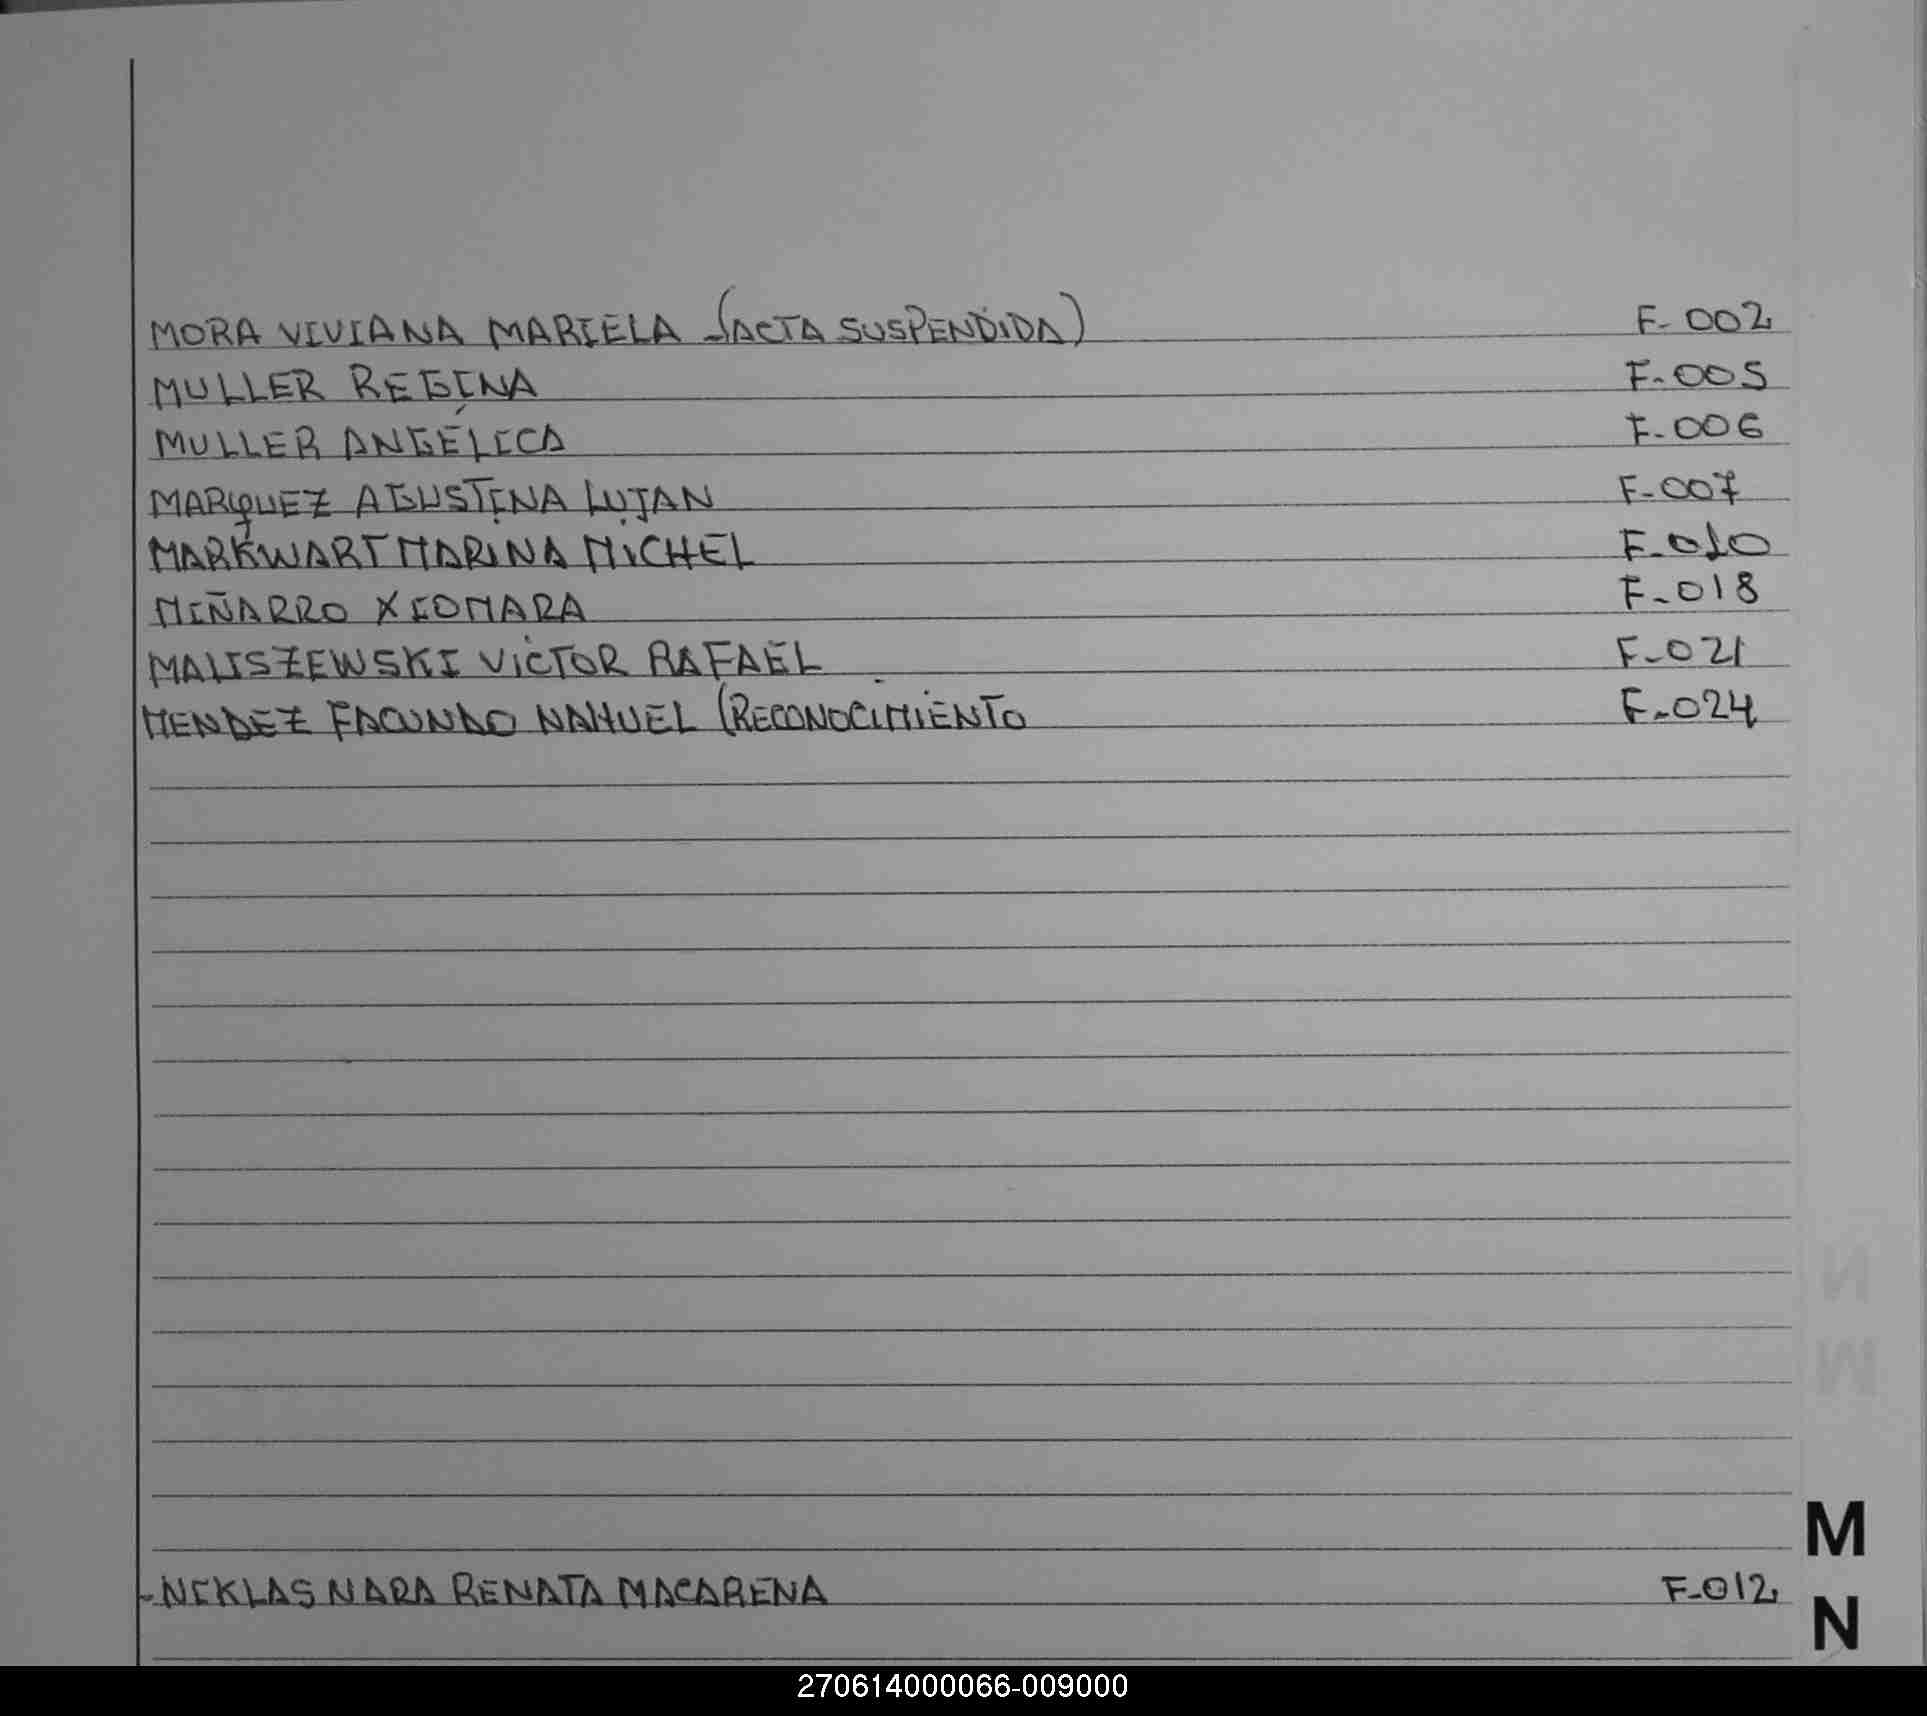 MORA VIVIANA MARIELA -(ACTA SUSPENDIDA) F- 002
MULLER REGINA F-005
MULLER ANGÉLICA F-006
MARQUEZ AGUSTINA LUJAN F-007
MARKWART MARINA MICHEL F-010
MIÑARRO XIOMARA F-018
MALISZEWSKI VICTOR RAFAEL F-021
MENDEZ FACUNDO NAHUEL (RECONOCIMIENTO F-024
N
M
M
-NIKLAS NARA RENATA MACARENA F-012
N
270614000066-009000